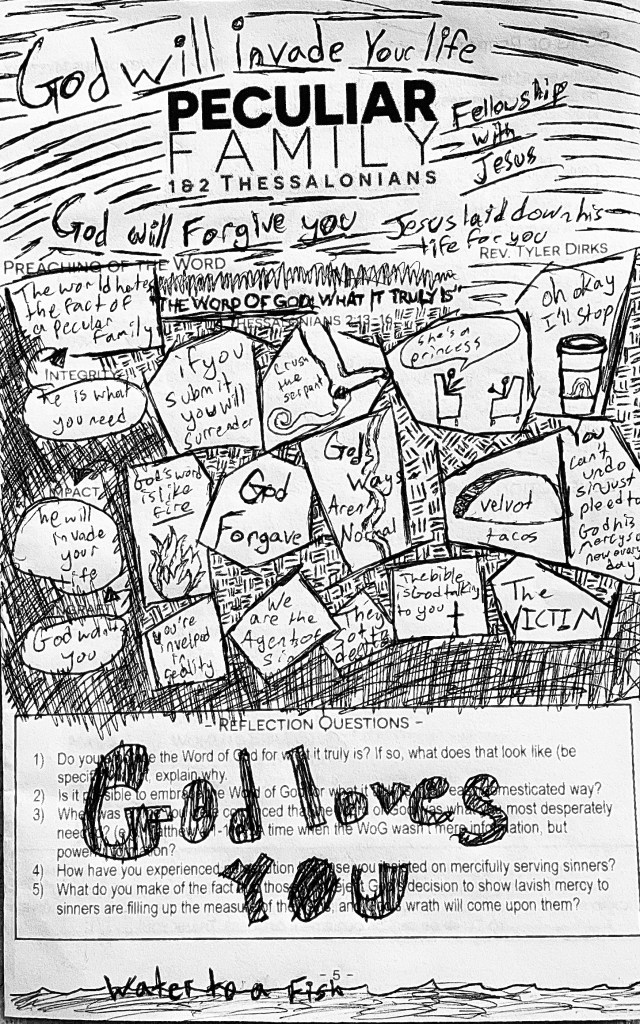 God will invade Your life
PECULIAR
FAMILY
1&2 THESSALONIANS
Fellowship
with
Jesus
God will Forgive you
Jesus laid down his
life for you
PREACHING OF THE WORD
REV. TYLER DIRKS
The world hates
the fact of
a pecular
family
"THE WORD OF GOD: WHAT IT TRULY IS"
THESSALONIANS 2:13-16
oh okay
I'll stop
INTEGRITY
He is what
you need
if you
submit
you will
surrender
Crush
the
serpant
she's a
princess
IMPACT
he will
invade
your
life
God's word
is like
fire
God
Forgave
Gods
Ways
Aren
Normal
velvot
tacos
You
can't
undo
sin just
pleed to
God his
mercy's
new every
day
God wants
you
you're
to
reality
We
are the
Agents of
They
The bible
is God talking
to you
The
VICTIM
- REFLECTION QUESTIONS -
1) Do you the Word of God for what it truly is? If so, what does that look like (be
explain why.
2) Is it possible to embrace the Word of God for what it domesticated way?
3) When was that the of God was what you most desperately
need time when the WoG wasn't mere information, but
4) How have you experienced you insisted on mercifully serving sinners?
5) What do you make of the fact that those reject God's decision to show lavish mercy to
sinners are filling up the measure of and God's wrath will come upon them?
God loves
YOU
- 5 -
Water to a Fish